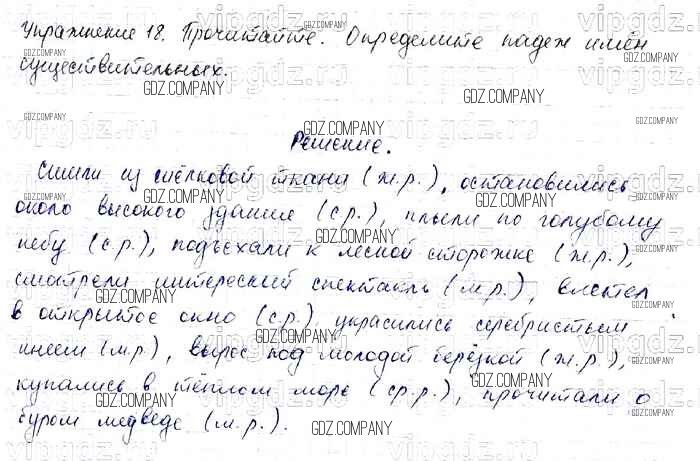 Упражнение 18. Прочитайте. Определите падеж имён
существительных.
Решение.
Сшили из шёлковой ткани (ж.р.), остановились
около высокого здание (ср.), плыли по голубому
небу (с.р.), подъехали к лесной сторожке (ж.р.),
смотрели интересный спектакль (м.р.), влетел
в открытое окно (с.р.), украсились серебристым
инеем (м.р.), вырос под молодой берёзкой (ж.р.),
купались в тёплом море (ср.р.), прочитали о
буром медведе (м.р.).